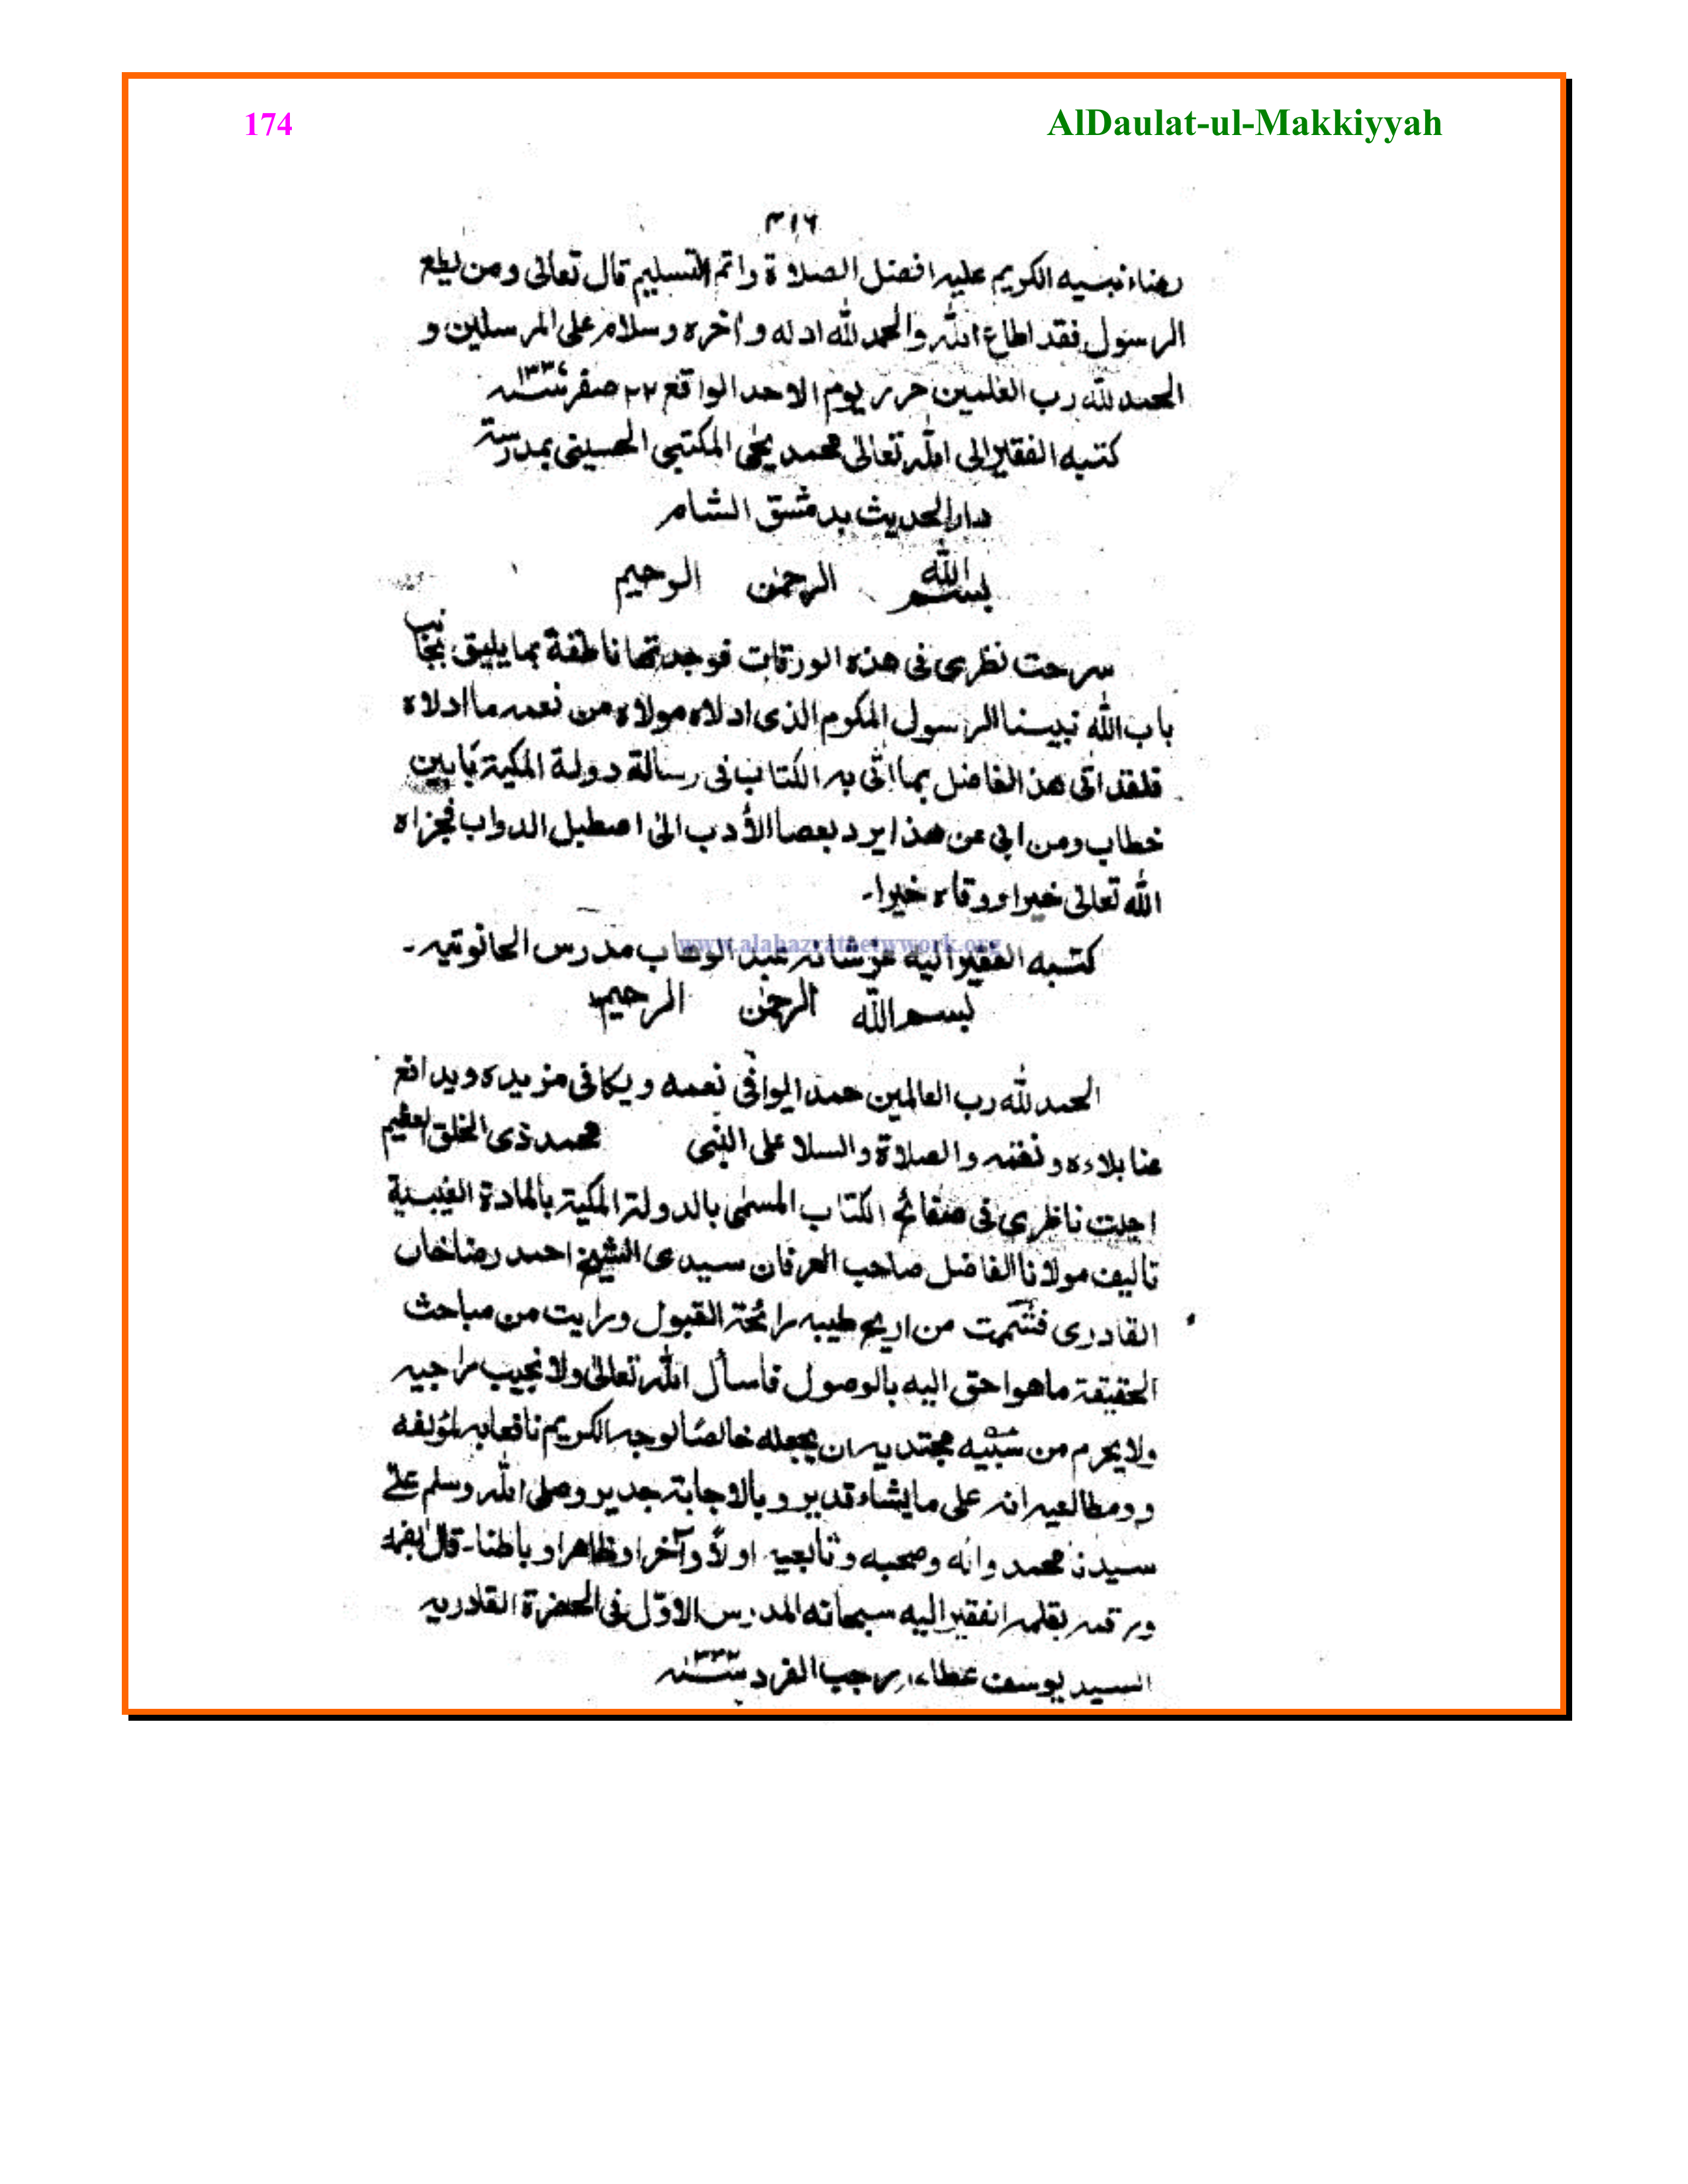 174 AlDaulat-ul-Makkiyyah
٣١٦
رضاء نبيه الكريم عليه افضل الصلاة واتم التسليم قال تعالى ومن يطع
الرسول فقد اطاع الله والحمد لله اوله وآخره وسلام على المرسلين و
الحمد لله رب العلمين حرر يوم الاحد الواقع ٢٢ صفر
كتبه الفقير الى الله تعالى محمد يحيى المكتبى الحسينى بمدرسة
دار الحديث بدمشق الشام
بسم الله الرحمن الرحيم
سرحت نظرى فى هذه الورقات فوجدتها ناطقة بما يليق بجناب
باب الله نبينا الرسول المكرم الذى اولاه مولاه من نعمه ما اولاه
فلقد اتى هذ الفاضل بما اتى به الكتاب فى رسالة دولة المكية
خطاب ومن ابى عن هذا يرد بعصا الأدب الى اصطبل الدواب فجزاه
الله تعالى خيرا ووقاه خيرا۔
www.alahazratnetwork.org
كتبه الفقير اليه عز شانه عبد الوهاب مدرس الحانوتيه۔
بسم الله الرحمن الرحيم
الحمد لله رب العالمين حمدا يوافى نعمه ويكافى مزيده ويدافع
عنا بلاءه ونقمه والصلاة والسلا على النبى محمد ذى الخلق العظيم
اجلت ناظرى فى صفائح الكتاب المسمى بالدولة المكية بالمادة الغيبية
تاليف مولانا الفاضل صاحب العرفان سيدى الشيخ احمد رضاخان
القادرى فشممت من اريج طيبه رائحة القبول ورايت من مباحث
الحقيقة ما هو احق اليه بالوصول فاسأل الله تعالى ولا نجيب راجيه
ولا يحرم من مجتديه ان يجعله خالصا لوجه الكريم نافعا به لمؤلفه
و ومطالعيه انه على ما يشاء قدير و بالاجابة جدير وصلى الله وسلم على
سيدنا محمد واله وصحبه وتابعيه اولا وآخرا وظاهرا وباطنا۔ قال بفمه
ورقمه بقلمه الفقير اليه سبحانه المدرس الاول فى الحضرة القادريه
السيد يوسف عطاء رجب الفرد